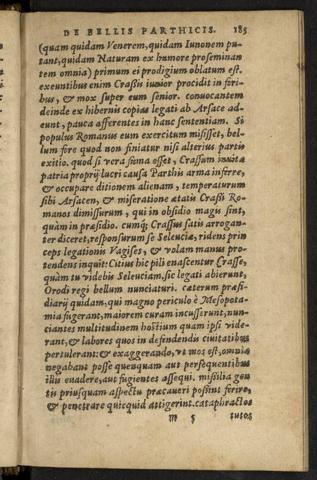 DE BELLIS PARTHICIS. 185
(quam quidam Venerem, quidam Iunonem pu-
tant, quidam Naturam ex humore proseminan
tem omnia) primum ei prodigium oblatum est.
exeuntibus enim Crassus iunior procidit in fori-
bus, & mox super eum senior. conuocantem
deinde ex hibernis copias legati ab Arsace ad-
eunt, pauca afferentes in hanc sententiam. Si
populus Romanus eum exercitum misisset, bel-
lum fore quod non finiatur nisi alterius partis
exitio. quod si vera fiona esset, Crassum inuita
patria proprij lucri causa Parthis arma inferre,
& occupare ditionem alienam, temperaturum
sibi Arsacem, & miseratione ætatis Crasij Ro-
manos dimissurum, qui in obsidio magis sint,
quàm in præsidio. cumq́; Crassus satis arrogan-
ter diceret, responsurum se Seleuciæ, ridens prin
ceps legationis Vagises, & volam manus pro-
tendens inquit: Citius hic pili enascentur Crasse,
quàm tu videbis Seleuciam. sic legati abierunt,
Orodi regi bellum nunciaturi. cæterum præsi-
diarij quidam, qui magno periculo è Mesopota-
mia fugerant, maiorem curam incusserunt, nun-
ciantes multitudinem hostium quam ipsi vide-
rant, & labores quos in defendendis ciuitatibus
pertulerant: & exaggerando, vt mos est, omnia
negabant posse quenquam aut persequentibus
illis euadere, aut fugientes assequi. missilia gen
tis priusquam aspectu præcaueri possint ferire,
& penetrare quicquid attigerint. cataphractos
m 5 tutos